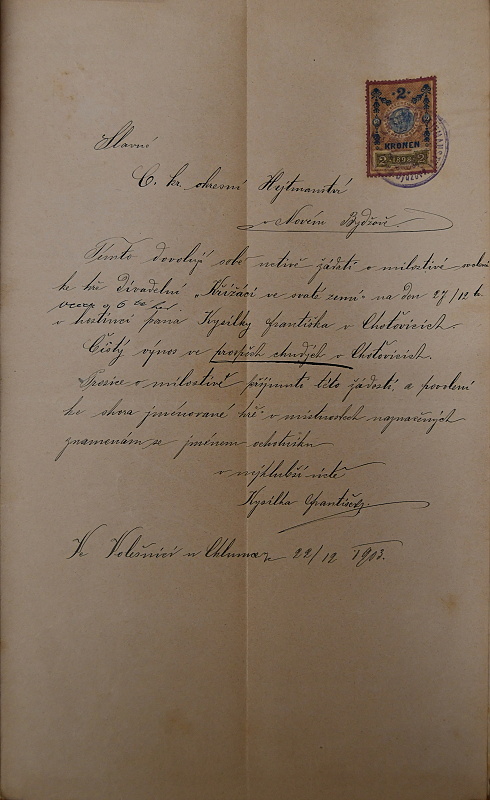 2
KRONEN
2 1898 2
Slavné
C. kr. okresní Hejtmanství
v Novém Bydžově.
Tímto dovoluji sobě uctivě žádati o milostivé
ke hře Divadelní „Křižáci ve svaté zemi" na den 27/12 t.
večer o 6
v hostinci pana Kysilky Františka v Choťovicích.
Čistý výnos ve prospěch chudých v Choťovicích.
Prosíce o milostivé přijmutí této žádosti, a povolení
ke shora jmenované hře v místnostech naznačených
znamenám se jménem ochotníků
v nejhlubší úctě
Kysilka František
Ve Volešnici u Chlumce 22/12 1903.